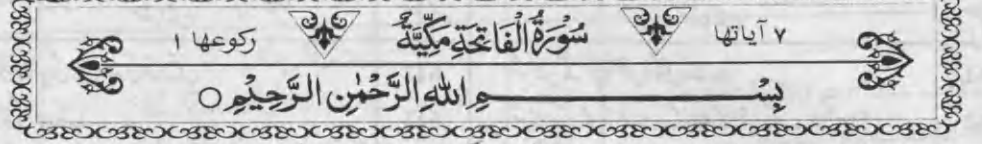 ٧ آياتها سُوْرَةُ الْفَاتِحَةِ مَكِّيَّةٌ ركوعها ١
بِسْــــــــمِ اللهِ الرَّحْمٰنِ الرَّحِيْمِ ○